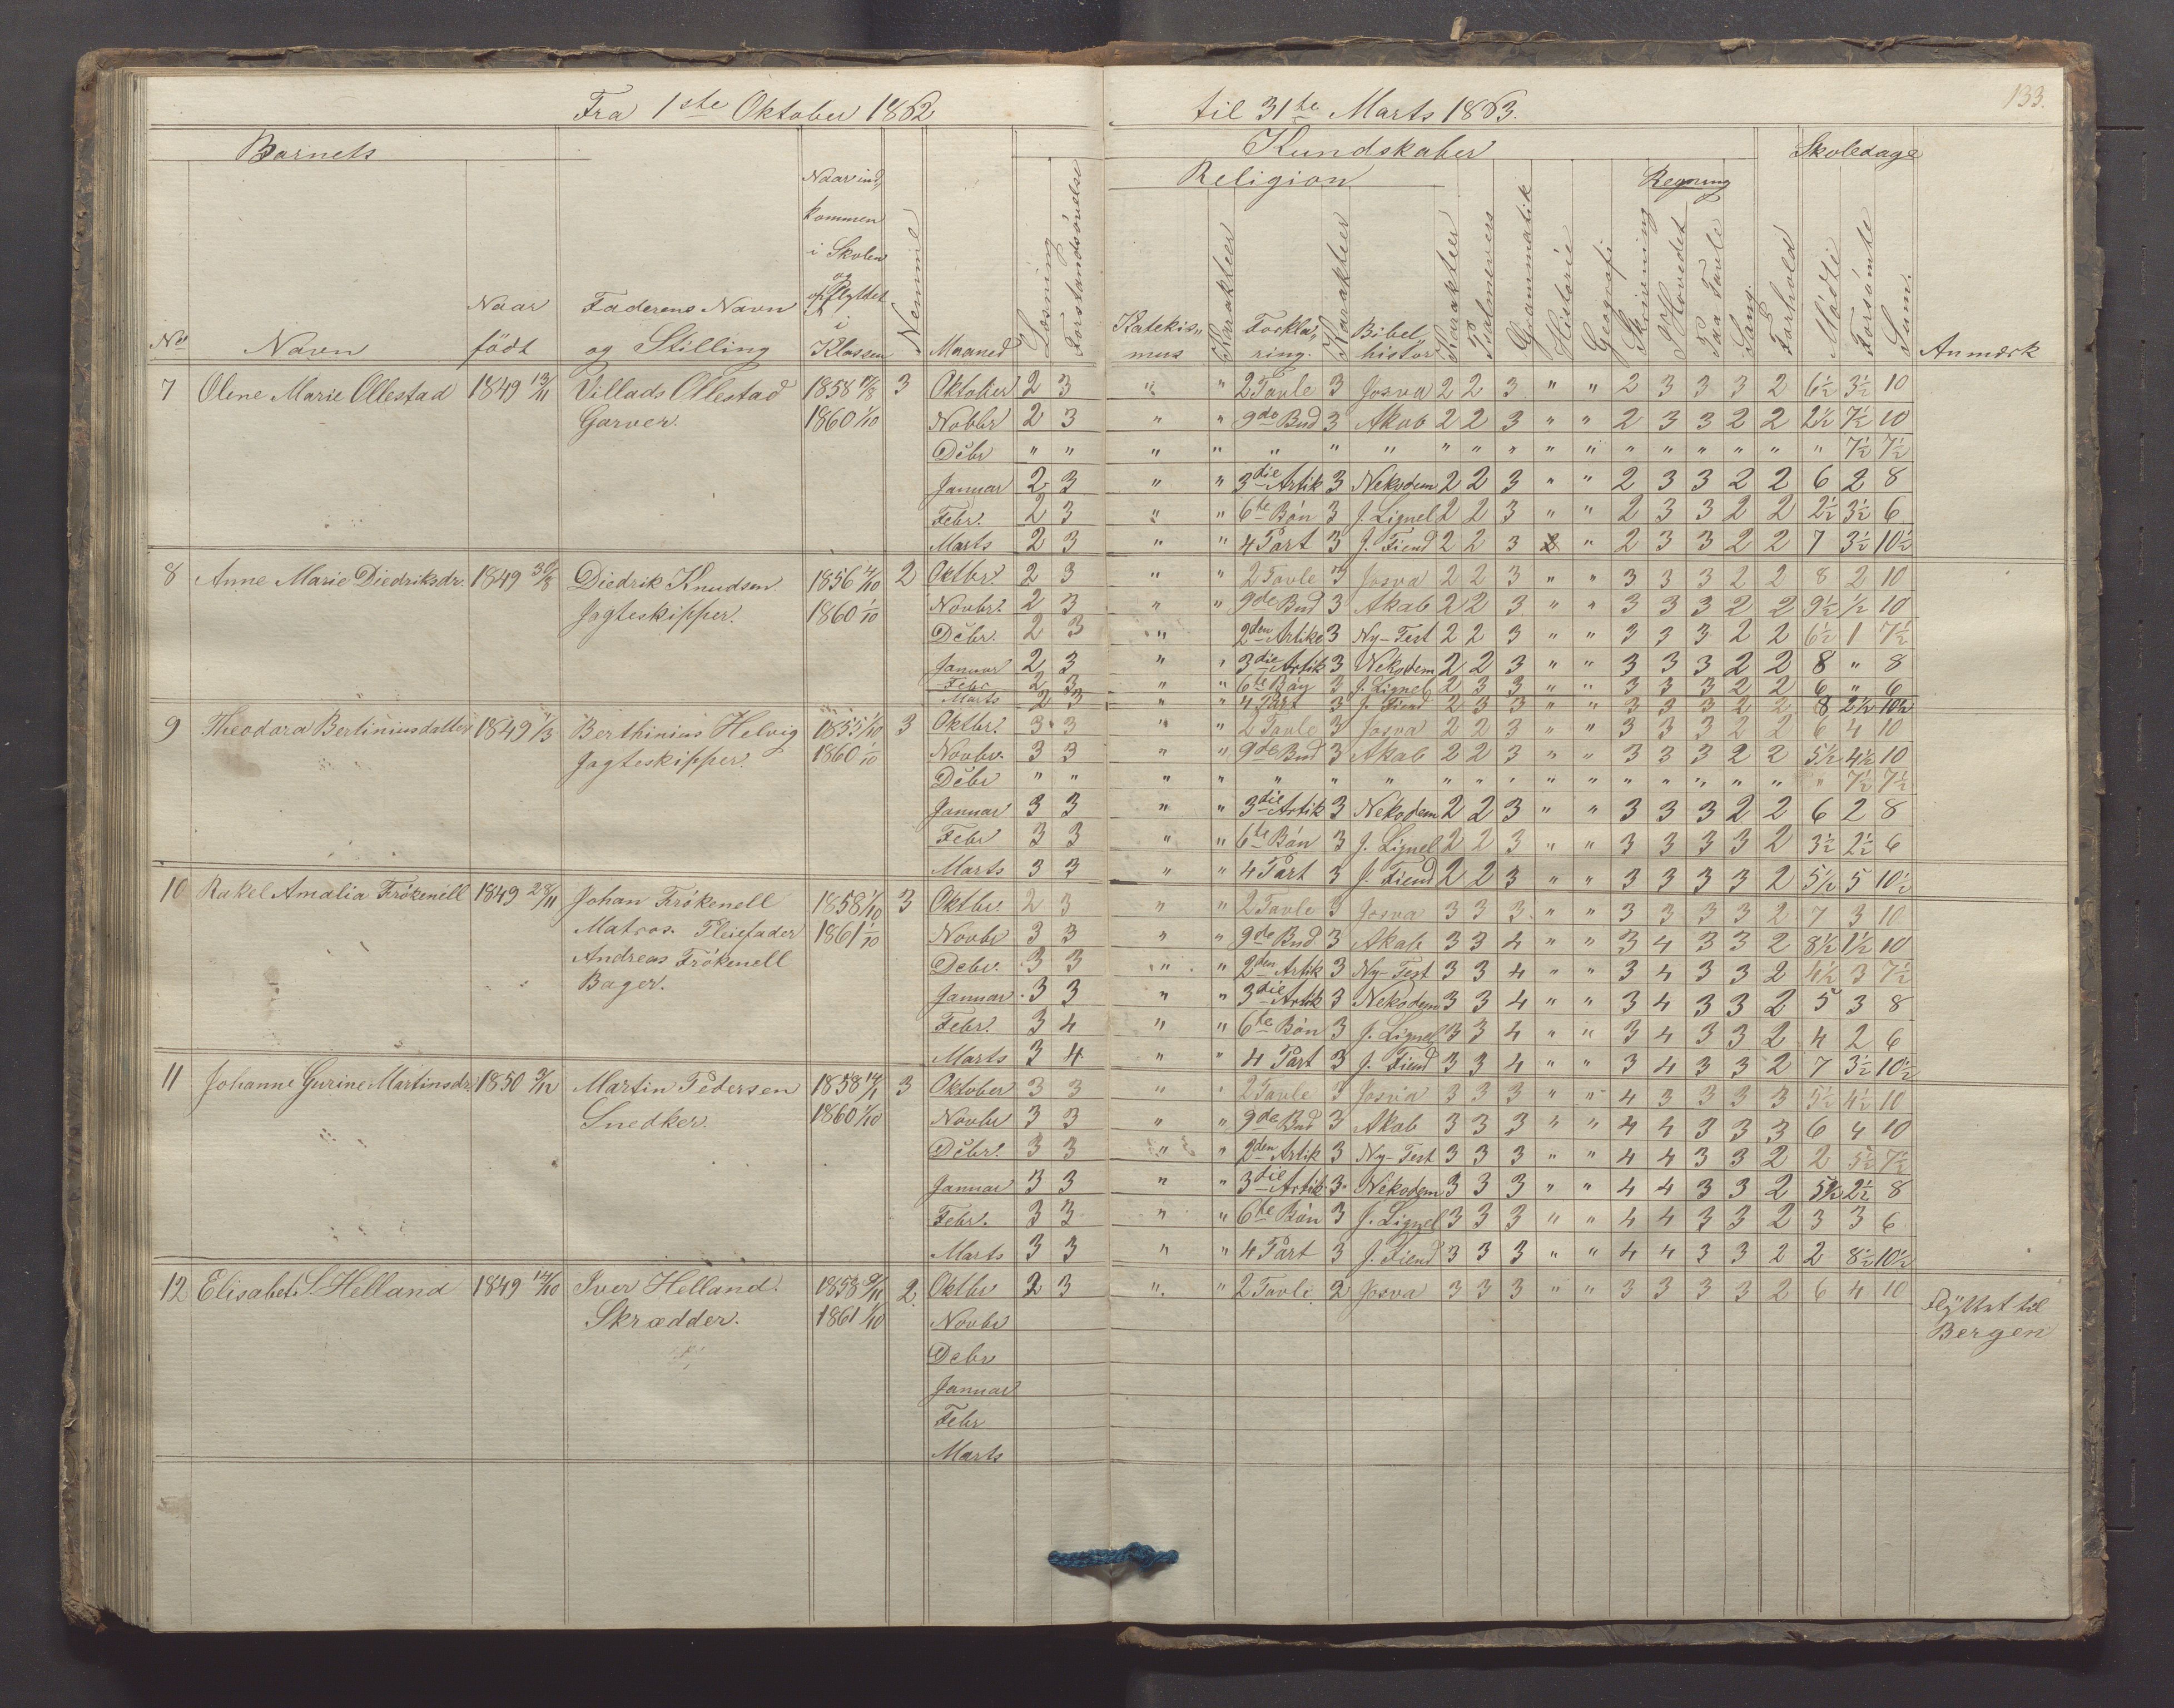 133.
Fra 1ste Oktober 1862 til 31te Marts 1863.
Barnets Kundskaber Skoledage
Religion Regning
No Navn Naar født Faderens Navn og Stilling Naar ind„ kommen i Skolen og opflyttet i Klassen Nemme Maaned Læsning Forstandsøvelse Katekis„ mus Karakteer Forkla„ ring. Karakteer Bibel„ histor Karakteer Psalmevers Grammatik Historie Geografi Skrivning i Hovedet Paa Tavle Sang. Forhold Mødte Forsømte Sum. Anmærk
7 Oline Marie Ollestad 1849 13/11 Villads Ollestad 1858 17/8 3 Oktober 2 3 " " 2 Tavle 3 Josva 2 2 3 " " 2 3 3 3 2 6½ 3½ 10
Garver. 1860 1/10 Novbr 2 3 " " 9de Bud 3 Akab 2 2 3 " " 2 3 3 2 2 2½ 7½ 10
Debr " " " " " " " " " " " " " " " " " " " 7½ 7½
Januar 2 3 " " 3die Artik 3 Nekodem 2 2 3 " " 2 3 3 2 2 6 2 8
Febr. 2 3 " " 6te Bøn 3 J. Lignel 2 2 3 " " 2 3 3 2 2 2½ 3½ 6
Marts 2 3 " " 4 Part 3 J. Fiend 2 2 3 " 2 3 3 2 2 7 3½ 10½
8 Anne Marie Diedriksdr. 1849 30/8 Diedrik Knudsen 1856 4/10 2 Oktbr. 2 3 " " 2 Tavle 3 Josva 2 2 3 " " 3 3 3 2 2 8 2 10
Jagteskipper. 1860 1/10 Novbr. 2 3 " " 9de Bud 3 Akab 2 2 3 " " 3 3 3 2 2 9½ ½ 10
Debr. 2 3 " 2den Artike 3 Ny-Test 2 2 3 " " 3 3 3 2 2 6½ 1 7½
Januar 2 3 " " 3die Artik 3 Nekodem 2 2 3 " " 3 3 3 2 2 8 " 8
Febr 2 3 " " 6te Bøn 3 J. Lignel 2 3 3 " " 3 3 3 2 2 6 " 6
Marts 2 3 " " 4 Part 3 J. Fiend 2 3 3 " " 3 3 3 2 2 8 2½ 10½
9 Theodora Bertiniusdatter 1849 1/3 Berthinius Helvig 1855 1/10 3 Oktbr. 3 3 " " 2 Tavle 3 Josva 2 2 3 " " 3 3 3 2 2 6 4 10
Jagteskipper. 1860 1/10 Novbr. 3 3 " " 9de Bud 3 Akab 2 2 3 " " 3 3 3 2 2 5½ 4½ 10
Debr " " " " " " " " " " " " " " " " " " " 7½ 7½
Januar 3 3 " " 3die Artik 3 Nekodem 2 2 3 " " 3 3 3 2 2 6 2 8
Febr 3 3 " " 6te Bøn 3 J. Lignel 2 2 3 " " 3 3 3 3 2 3½ 2½ 6
Marts 3 3 " " 4 Part 3 J. Fiend 2 2 3 " " 3 3 3 3 2 5½ 5 10½
10 Rakel Amalia Frøkenell 1849 28/11 Johan Frøkenell 1858 1/10 3 Oktbr. 2 3 " " 2 Tavle 3 Josva 3 3 3 " " 3 3 3 3 2 7 3 10
Matros. Pleiefader 1861 1/10 Novbr 3 3 " " 9de Bud 3 Akab 3 3 4 " " 3 4 3 3 2 8½ 1½ 10
Andreas Frøkenell Debr. 3 3 " " 2den Artik 3 Ny-Test 3 3 4 " " 3 4 3 3 2 4½ 3 7½
Bager. Januar 3 3 " " 3die Artik 3 Nekodem 3 3 4 " " 3 4 3 3 2 5 3 8
Febr. 3 4 " " 6te Bøn 3 J. Lignel 3 3 4 " " 3 4 3 3 2 4 2 6
Marts 3 4 " " 4 Part 3 J. Fiend 3 3 4 " " 3 4 3 3 2 7 3½ 10½
11 Johanne Gurine Martinsdr. 1850 3/12 Martin Pedersen 1858 3 Oktober 3 3 " " 2 Tavle 3 Josva 3 3 3 " " 4 3 3 3 3 5½ 4½ 10
Snedker. 1860 1/10 Novbr 3 3 " " 9de Bud 3 Akab 3 3 3 " " 4 4 3 3 3 6 4 10
Debr. 3 3 " " 2den Artik 3 Ny-Test 3 3 3 " " 4 4 3 3 2 2 5½ 7½
Januar 3 3 " " 3die Artik 3 Nekodem 3 3 3 " " 4 4 3 3 2 5½ 2½ 8
Febr. 3 3 " " 6te Bøn 3 J. Lignel 3 3 3 " " 4 4 3 3 2 3 3 6
Marts 3 3 " " 4 Part 3 J. Fiend 3 3 3 " " 4 4 3 3 2 2 8½ 10½
12 Elisabet S. Helland 1849 12/10 Iver Helland. 1858 2 Oktbr 2 3 " " 2 Tavle 2 Josva 3 3 3 " " 3 3 3 3 2 6 4 10 Flyttet til
Skrædder. 1861 1/10 Novbr Bergen
Debr
Januar
Febr
Marts